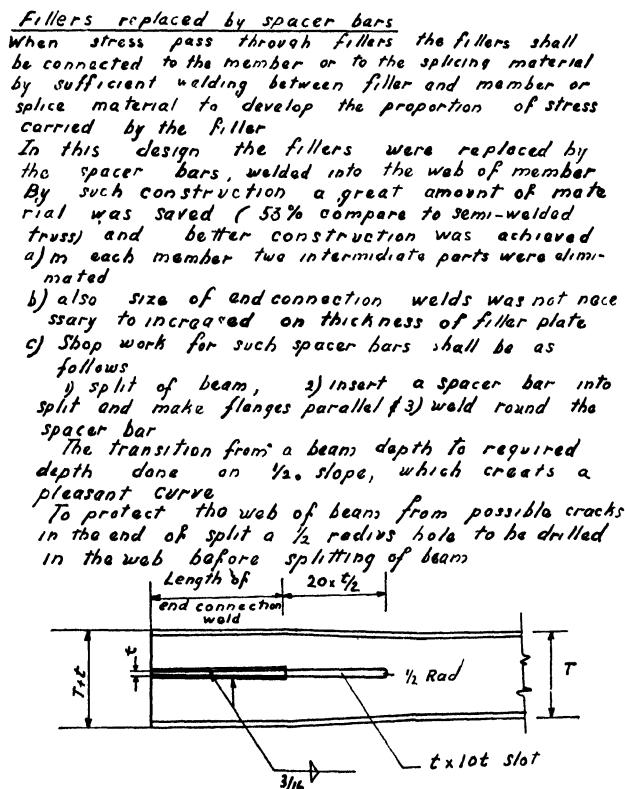 Fillers replaced by spacer bars
When stress pass through fillers the fillers shall
be connected to the member or to the splicing material
by sufficient welding between filler and member or
splice material to develop the proportion of stress
carried by the filler
In this design the fillers were replaced by
the spacer bars, welded into the web of member
By such construction a great amount of mate
rial was saved (53% compare to semi-welded
truss) and better construction was achieved
a) in each member two intermidiate parts were elimi-
nated
b) also size of end connection welds was not nece
ssary to increased on thickness of filler plate
c) Shop work for such spacer bars shall be as
follows
1) split of beam, 2) insert a spacer bar into
split and make flanges parallel & 3) weld round the
spacer bar
The transition from a beam depth to required
depth done on 1/20 slope, which creats a
pleasant curve
To protect the web of beam from possible cracks
in the end of split a 1/2 radius hole to be drilled
in the web before splitting of beam
Length of
end connection
weld
20 x t/2
t
T+t
1/2 Rad
T
t x 10t slot
3/16